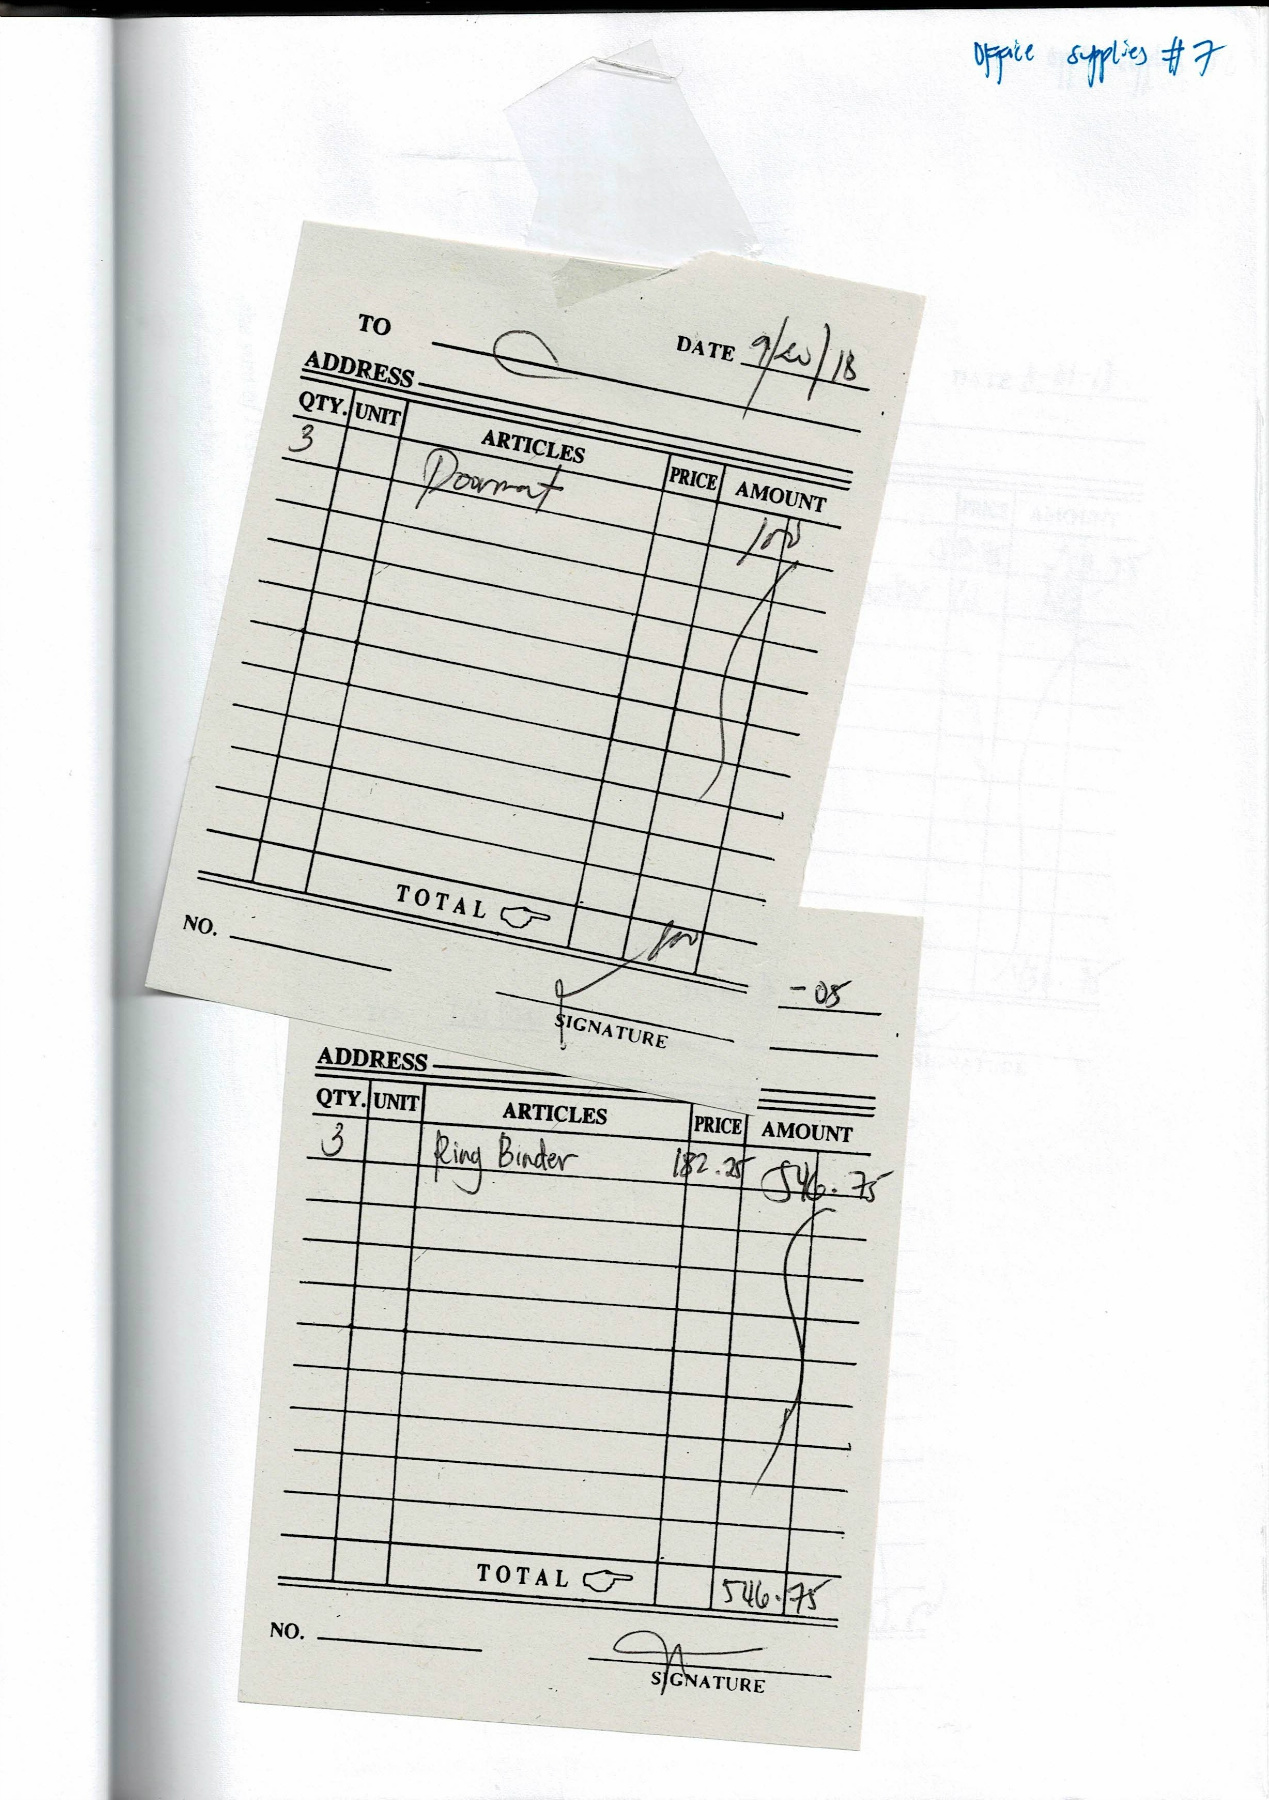 Office supplies #7
TO
DATE 9/20/18
ADDRESS
QTY. UNIT ARTICLES PRICE AMOUNT
3 Doormat 100
TOTAL 100
NO.
SIGNATURE
-05
ADDRESS
QTY. UNIT ARTICLES PRICE AMOUNT
3 Ring Binder 182.25 546.75
TOTAL 546.75
NO.
SIGNATURE